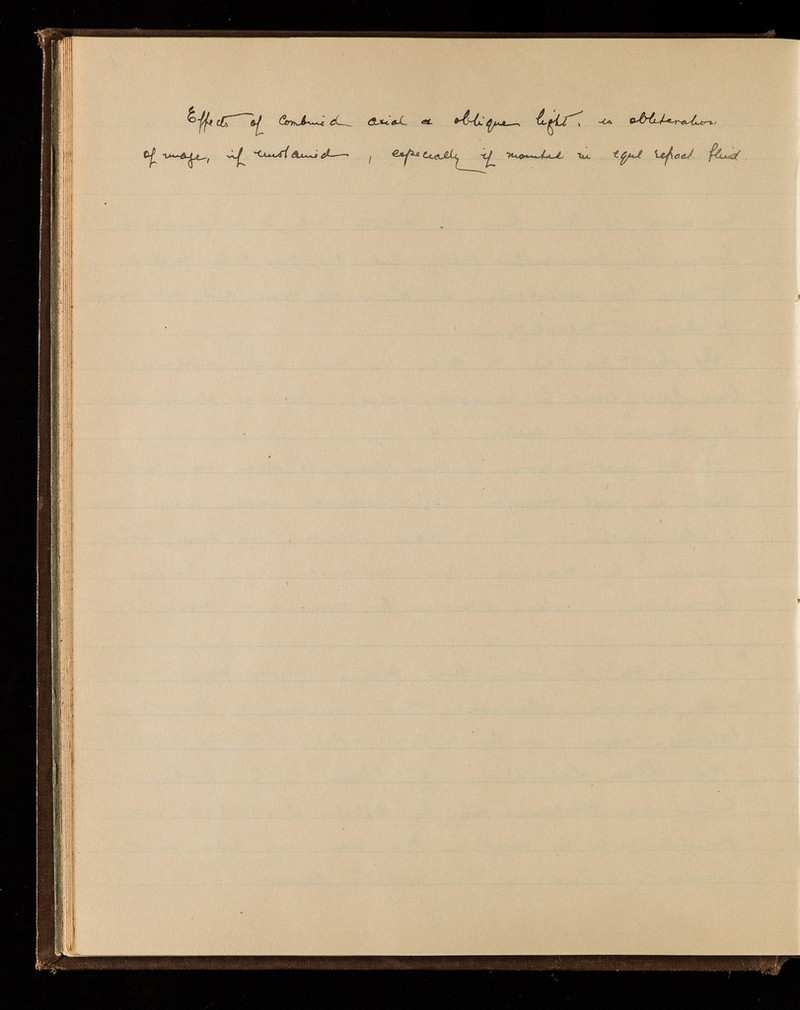 Effects of Combined axial & oblique light, is obliteration
of image, if unstained, especially if mounted in equal refract fluid.